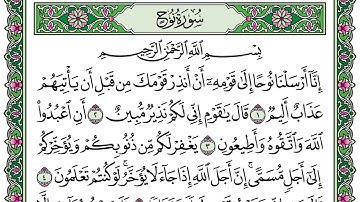 سُورَةُ نُوحٍ
بِسْمِ ٱللَّهِ ٱلرَّحْمَٰنِ ٱلرَّحِيمِ
إِنَّآ أَرْسَلْنَا نُوحًا إِلَىٰ قَوْمِهِۦٓ أَنْ أَنذِرْ قَوْمَكَ مِن قَبْلِ أَن يَأْتِيَهُمْ
عَذَابٌ أَلِيمٌ ١ قَالَ يَٰقَوْمِ إِنِّى لَكُمْ نَذِيرٌ مُّبِينٌ ٢ أَنِ ٱعْبُدُوا۟
ٱللَّهَ وَٱتَّقُوهُ وَأَطِيعُونِ ٣ يَغْفِرْ لَكُم مِّن ذُنُوبِكُمْ وَيُؤَخِّرْكُمْ
إِلَىٰٓ أَجَلٍ مُّسَمًّى إِنَّ أَجَلَ ٱللَّهِ إِذَا جَآءَ لَا يُؤَخَّرُ لَوْ كُنتُمْ تَعْلَمُونَ ٤